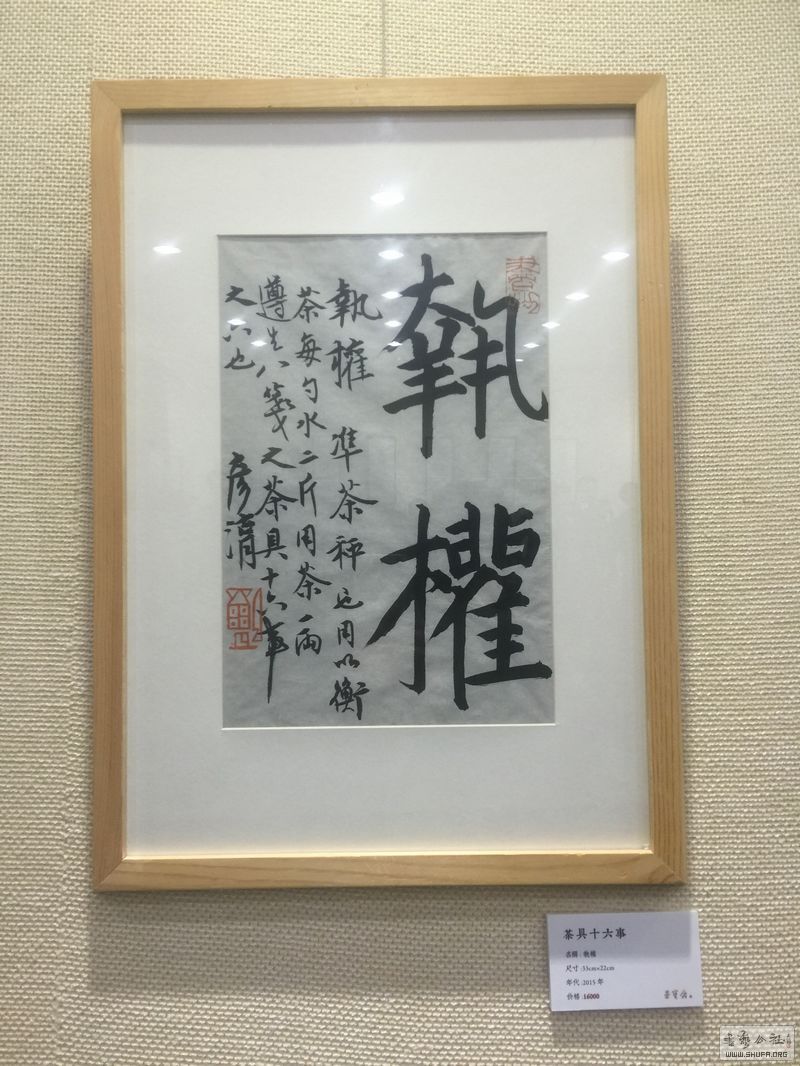 執權
執權 準茶秤也用以衡
茶每勺水二斤用茶一兩
遵生八箋之茶具十六事
之六也 彥湑
茶具十六事
名稱:執權
尺寸:33cm×22cm
年代:2015年
价格:16000
WWW.SHUFA.ORG